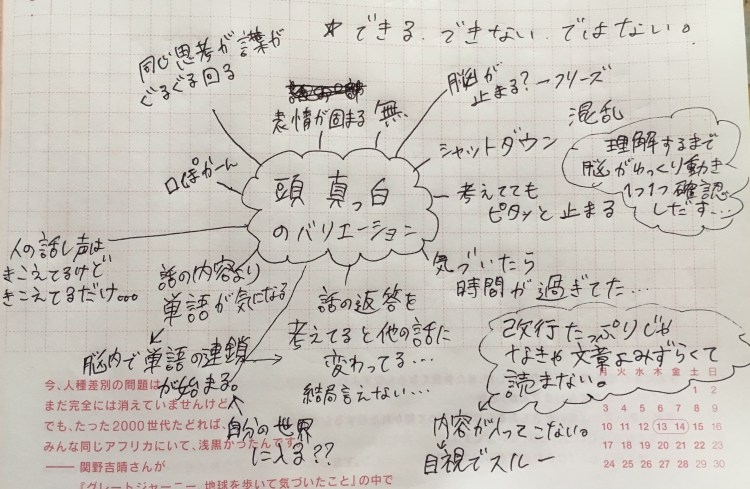 * できる.できない.ではない。
同じ思考が言葉が
ぐるぐる回る
表情が固まる
無
脳が
止まる?→フリーズ
混乱
シャットダウン
考えてても
ピタッと止まる
理解するまで
脳がゆっくり動き
1つ1つ確認
しだす…
口ぽかーん
頭真っ白
のバリエーション
人の話し声は
きこえてるけど
きこえてるだけ。。。
話の内容より
単語が気になる
脳内で単語の連鎖
が始まる。
自分の世界
に入る??
話の返答を
考えてると他の話に
変わってる…
結局言えない…
気づいたら
時間が過ぎてた…
改行たっぷりじゃ
なきゃ文章よみずらくて
読まない。
内容が入ってこない。
目視でスルー
今、人種差別の問題は
まだ完全には消えていませんけど
でも、たった2000世代たどれば、
みんな同じアフリカにいて、浅黒かったんです
―― 関野吉晴さんが
『グレートジャーニー 地球を歩いて気づいたこと』の中で
月 火 水 木 金 土 日
1 2
3 4 5 6 7 8 9
10 11 12 13 14 15 16
17 18 19 20 21 22 23
24 25 26 27 28 29 30